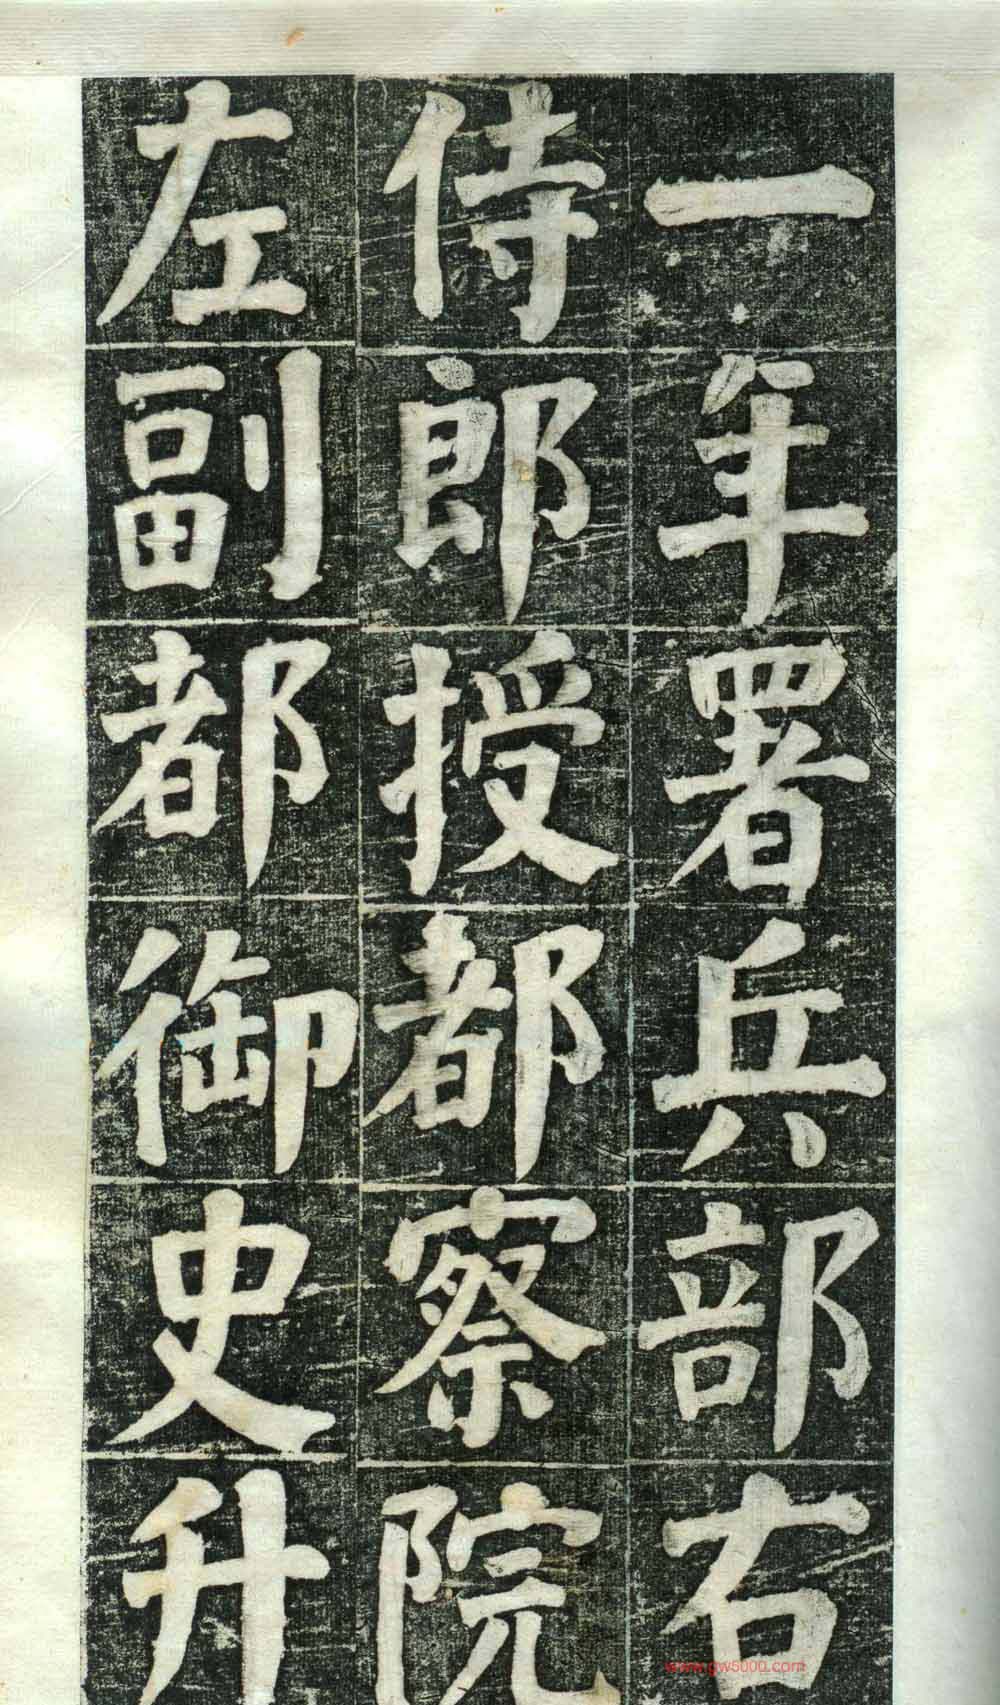 一年署兵部右
侍郎授都察院
左副都御史升
www.gw5000.com